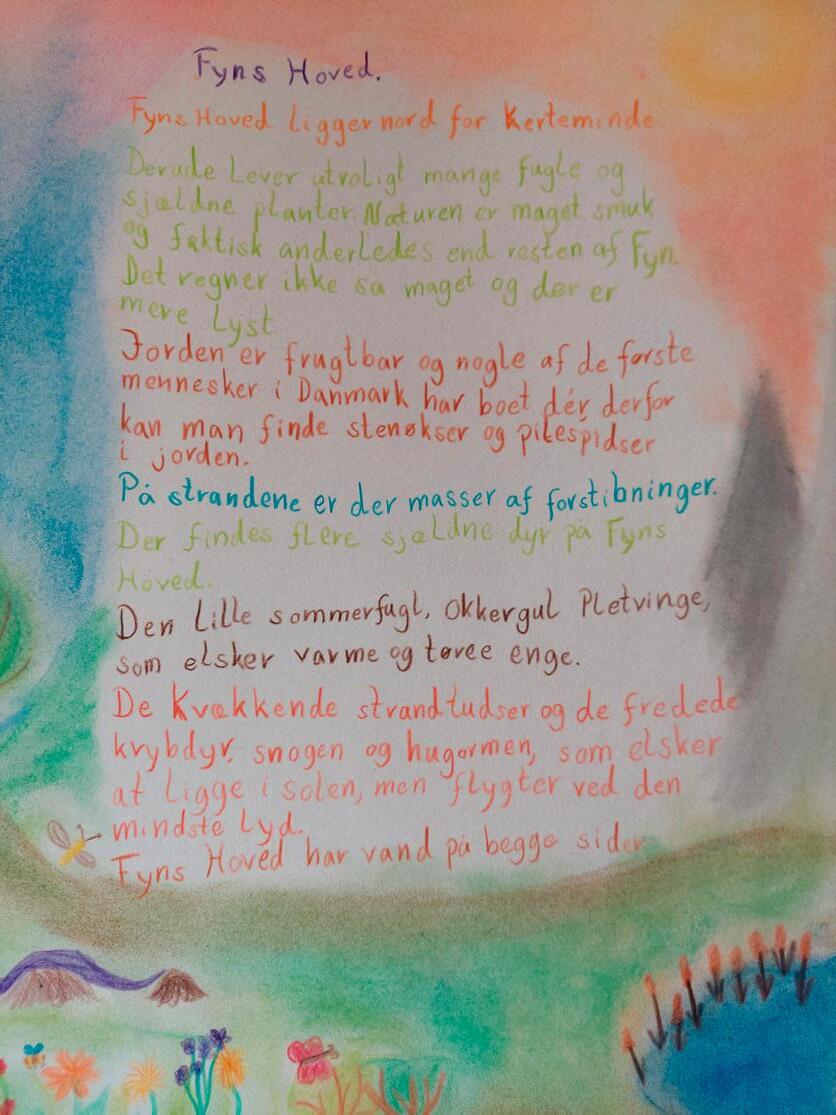 Fyns Hoved.
Fyns Hoved Ligger nord for Kerteminde
Derude Lever utroligt mange fugle og
sjældne planter. Naturen er maget smuk
og faktisk anderledes end resten af Fyn.
Det regner ikke så maget og der er
mere Lyst.
Jorden er frugtbar og nogle af de første
mennesker i Danmark har boet dér derfor
kan man finde stenøkser og pilespidser
i jorden.
På strandene er der masser af forstibninger.
Der findes flere sjældne dyr på Fyns
Hoved.
Den Lille sommerfugl, Okkergul Pletvinge,
som elsker varme og tøree enge.
De Kvækkende strandtudser og de fredede
krybdyr, snogen og hugormen, som elsker
at Ligge i solen, men flygter ved den
mindste Lyd.
Fyns Hoved har vand på begge sider